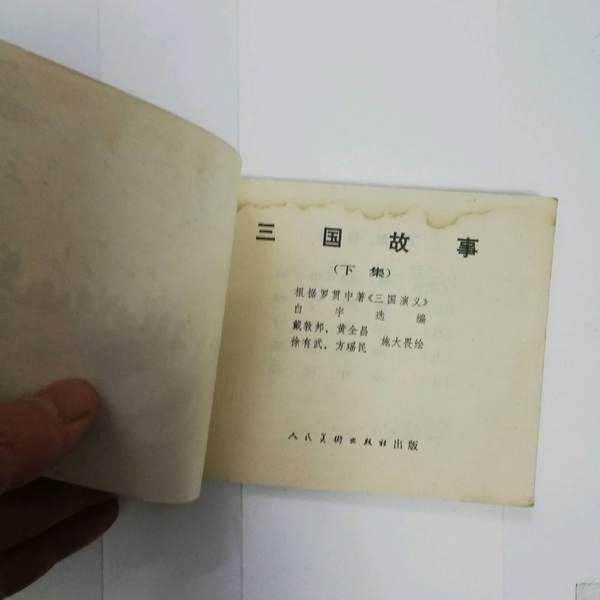 三国故事
（下集）
根据罗贯中著《三国演义》
白宇 选编
戴敦邦、黄全昌
徐有武、方瑶民 施大畏绘
人民美術出版社出版